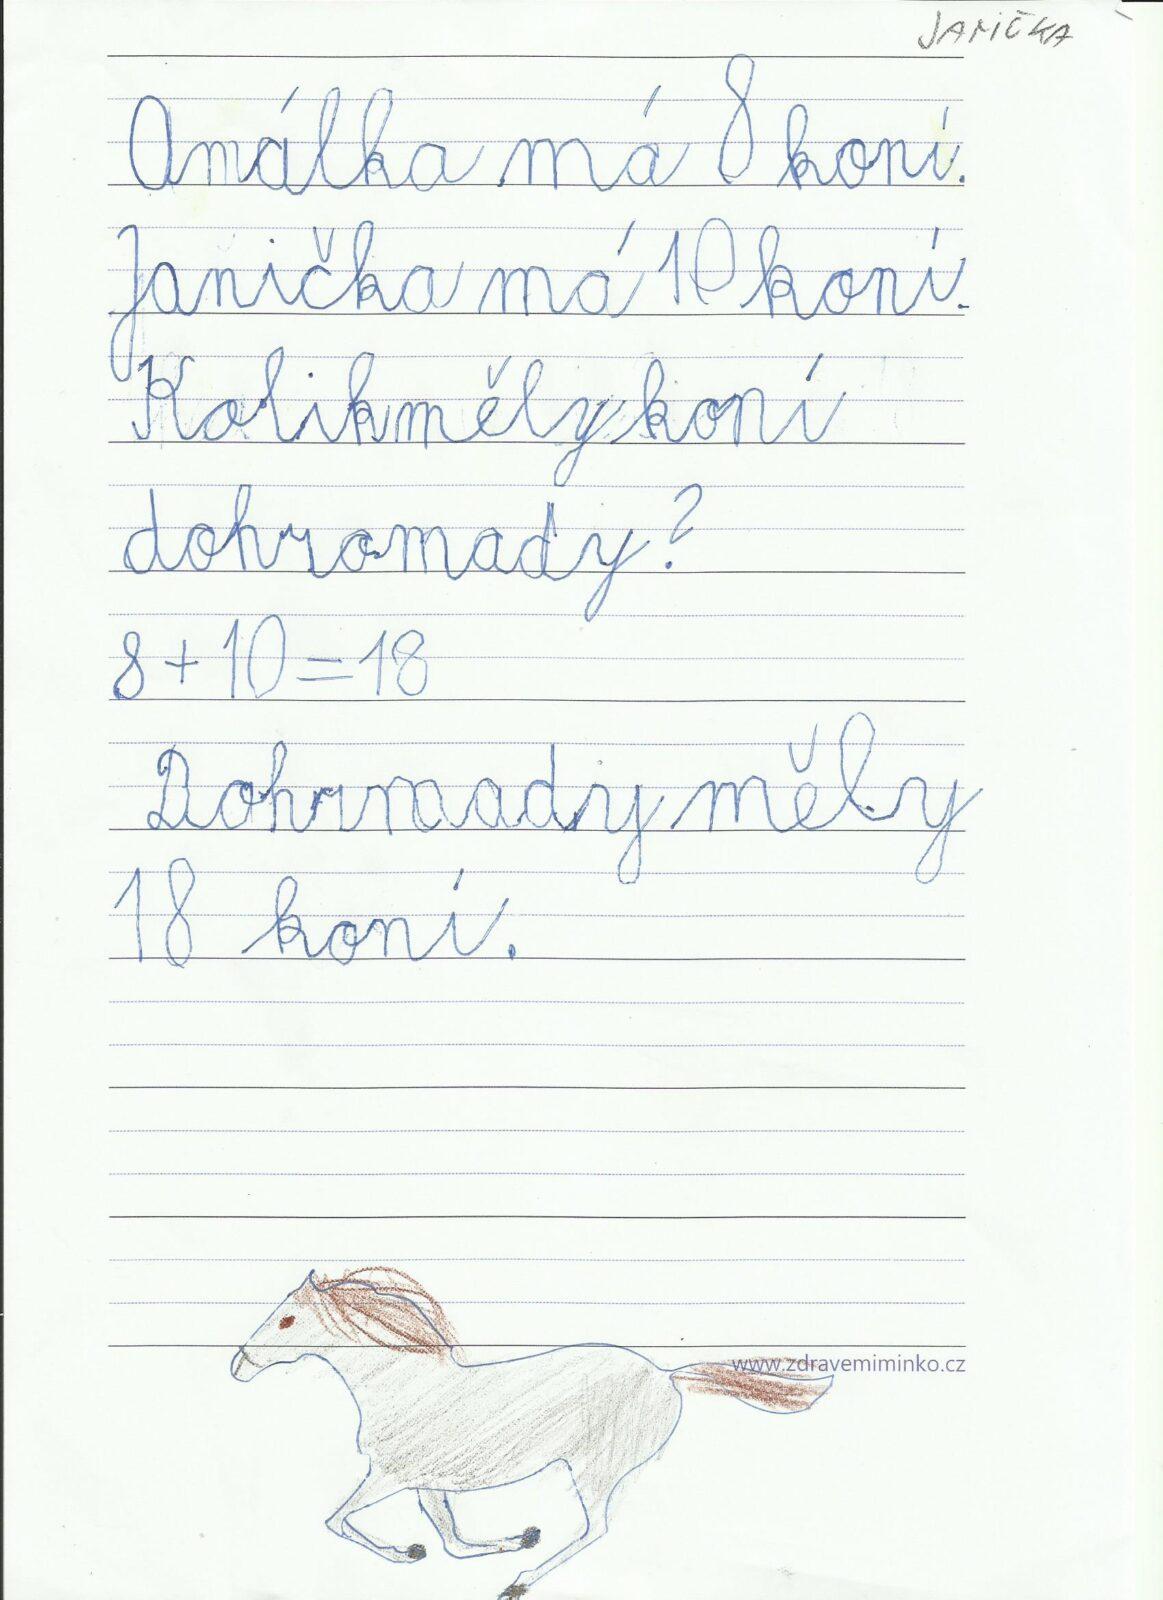 JANIČKA
Amálka má 8 koní.
Janička má 10 koní.
Kolik měly koní
dohromady?
8 + 10 = 18
Dohrmady měly
18 koní.
www.zdravemiminko.cz